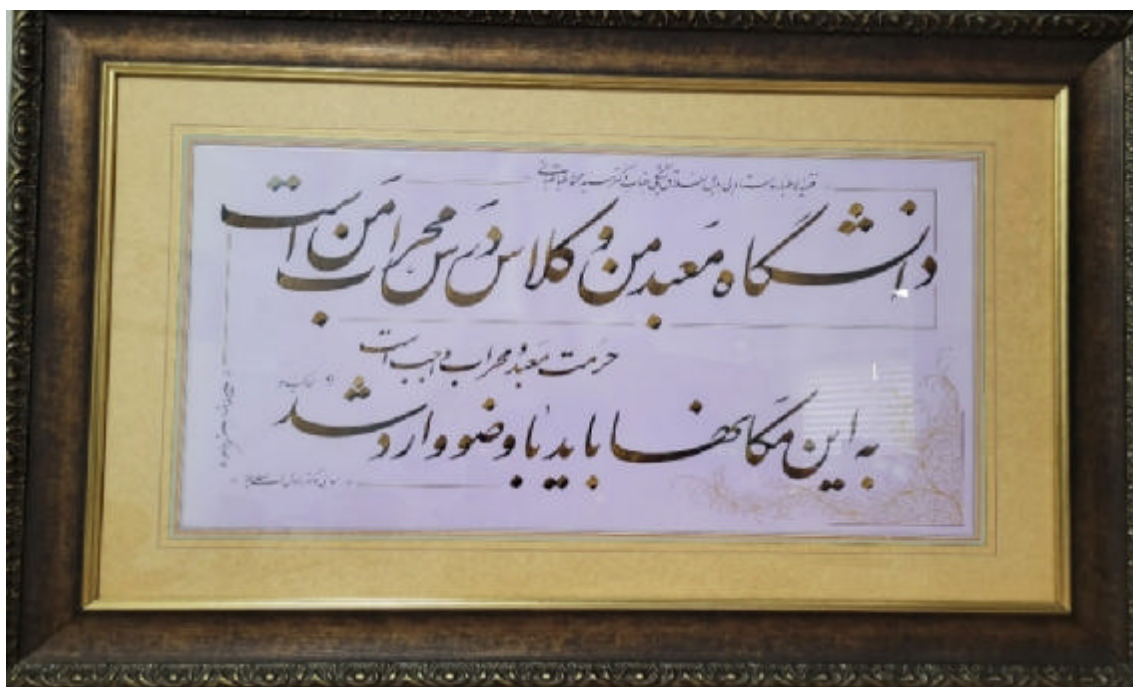 دانشگاه معبد من و کلاس درس محراب من است
حرمت معبد و محراب واجب است
به این مکانها باید با وضو وارد شد